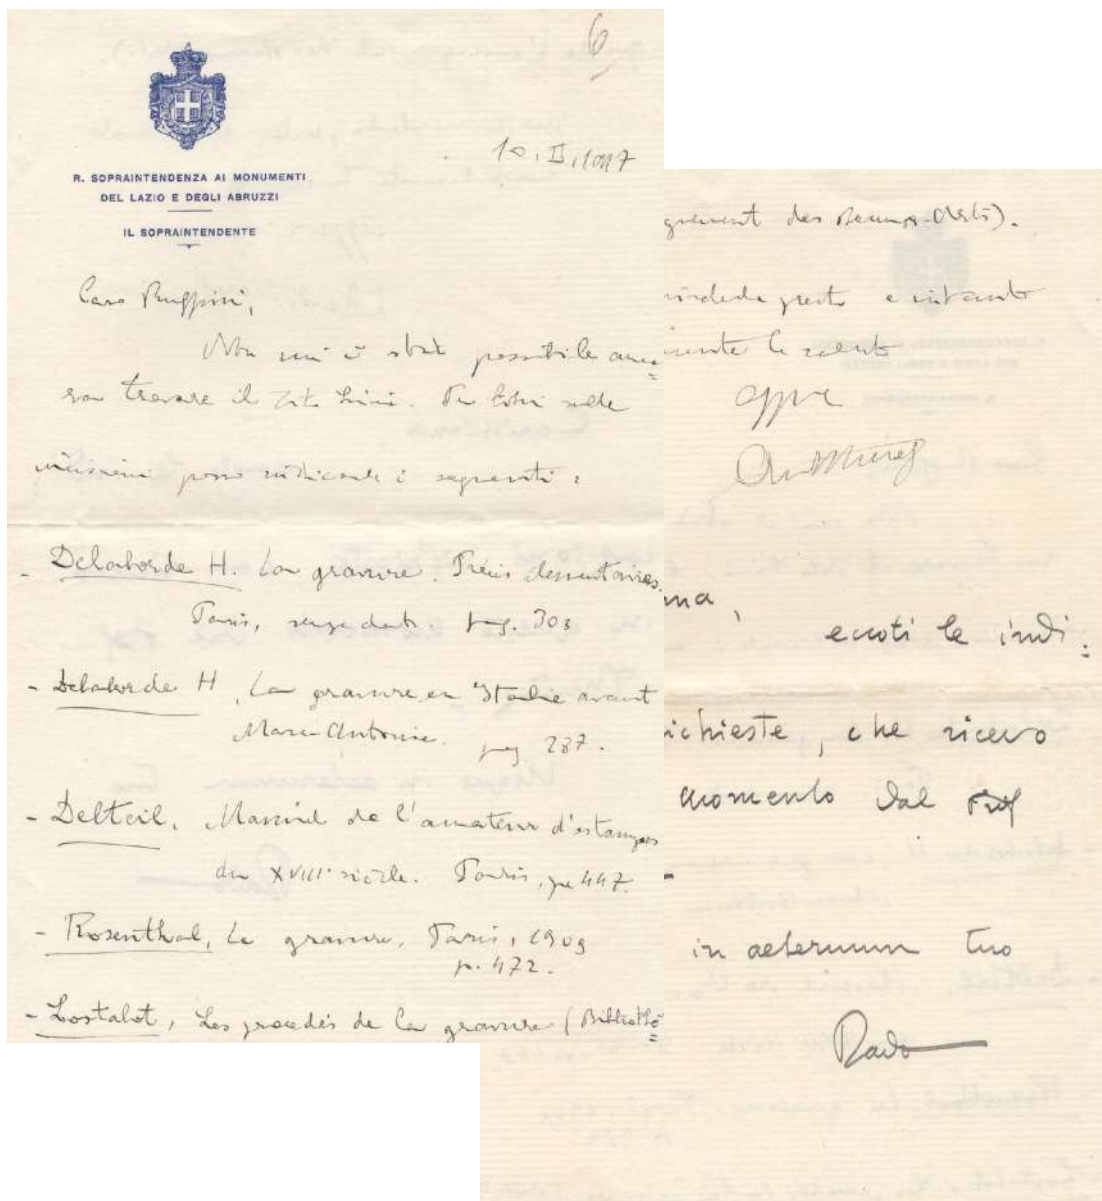 6
10. II. 1947
R. SOPRAINTENDENZA AI MONUMENTI
DEL LAZIO E DEGLI ABRUZZI
IL SOPRAINTENDENTE
Caro Ruffini,
Non mi è stato possibile anco=
ra trovare il Tito Livio. Per libri sulle
incisioni posso indicarle i seguenti:
- Delaborde H. La gravure. Précis élémentaires.
Paris, senza data pag. 303
- Delaborde H, La gravure en Italie avant
Marc-Antonie. pag 287.
- Delteil, Manuel de l'amateur d'estampes
du XVIII siècle. Paris, pp 447.
- Rosenthal, La gravure, Paris, 1909
p. 472.
- Lostalot, Les procédés de la gravure (Bibliothè=
gnement des Beaux-Arts).
presto e intanto
mente la saluto
ma,
eccoti le indi=
ichieste, che ricevo
momento dal Prof
in aeternum tuo